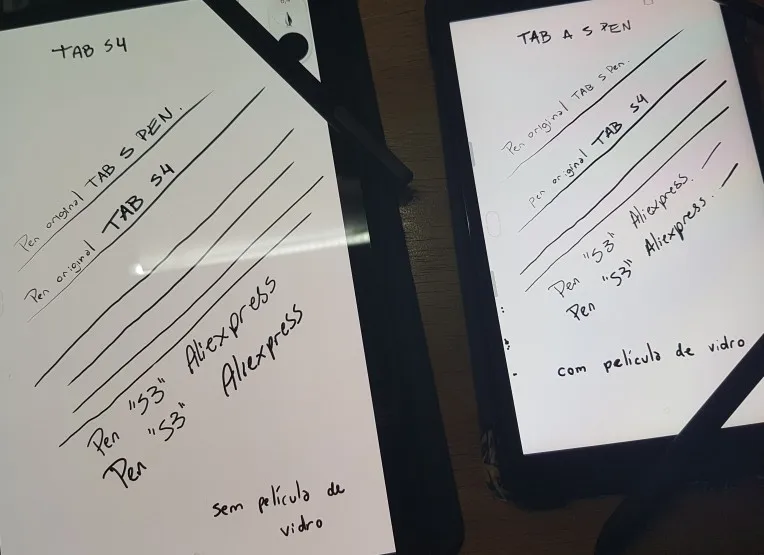 TAB S4
Pen original TAB S PEN.
Pen original TAB S4
Pen "S3" Aliexpress
Pen "S3" Aliexpress
sem película de
vidro
TAB A S PEN
Pen original TAB S Pen.
Pen original TAB S4
Pen "S3" Aliexpress.
Pen "S3" Aliexpress.
com película de vidro